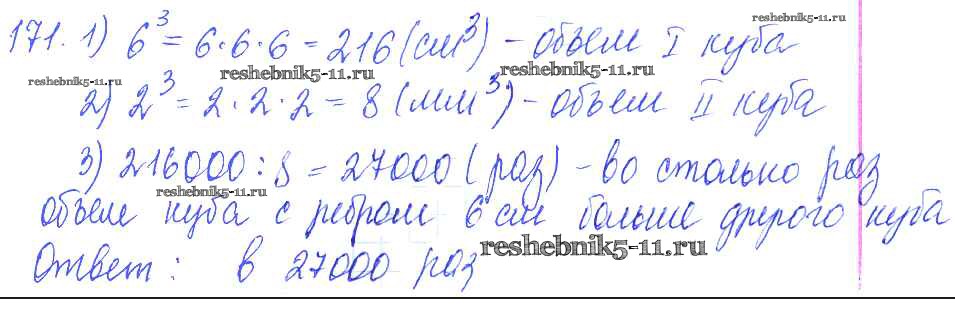 reshebnik5-11.ru
171. 1) 6³ = 6·6·6 = 216 (см³) – объем I куба
reshebnik5-11.ru reshebnik5-11.ru
reshebnik5-11.ru
2) 2³ = 2·2·2 = 8 (мм³) – объем II куба
3) 216000 : 8 = 27000 (раз) – во столько раз
reshebnik5-11.ru
объем куба с ребром 6 см больше другого куба
reshebnik5-11.ru
Ответ: в 27000 раз